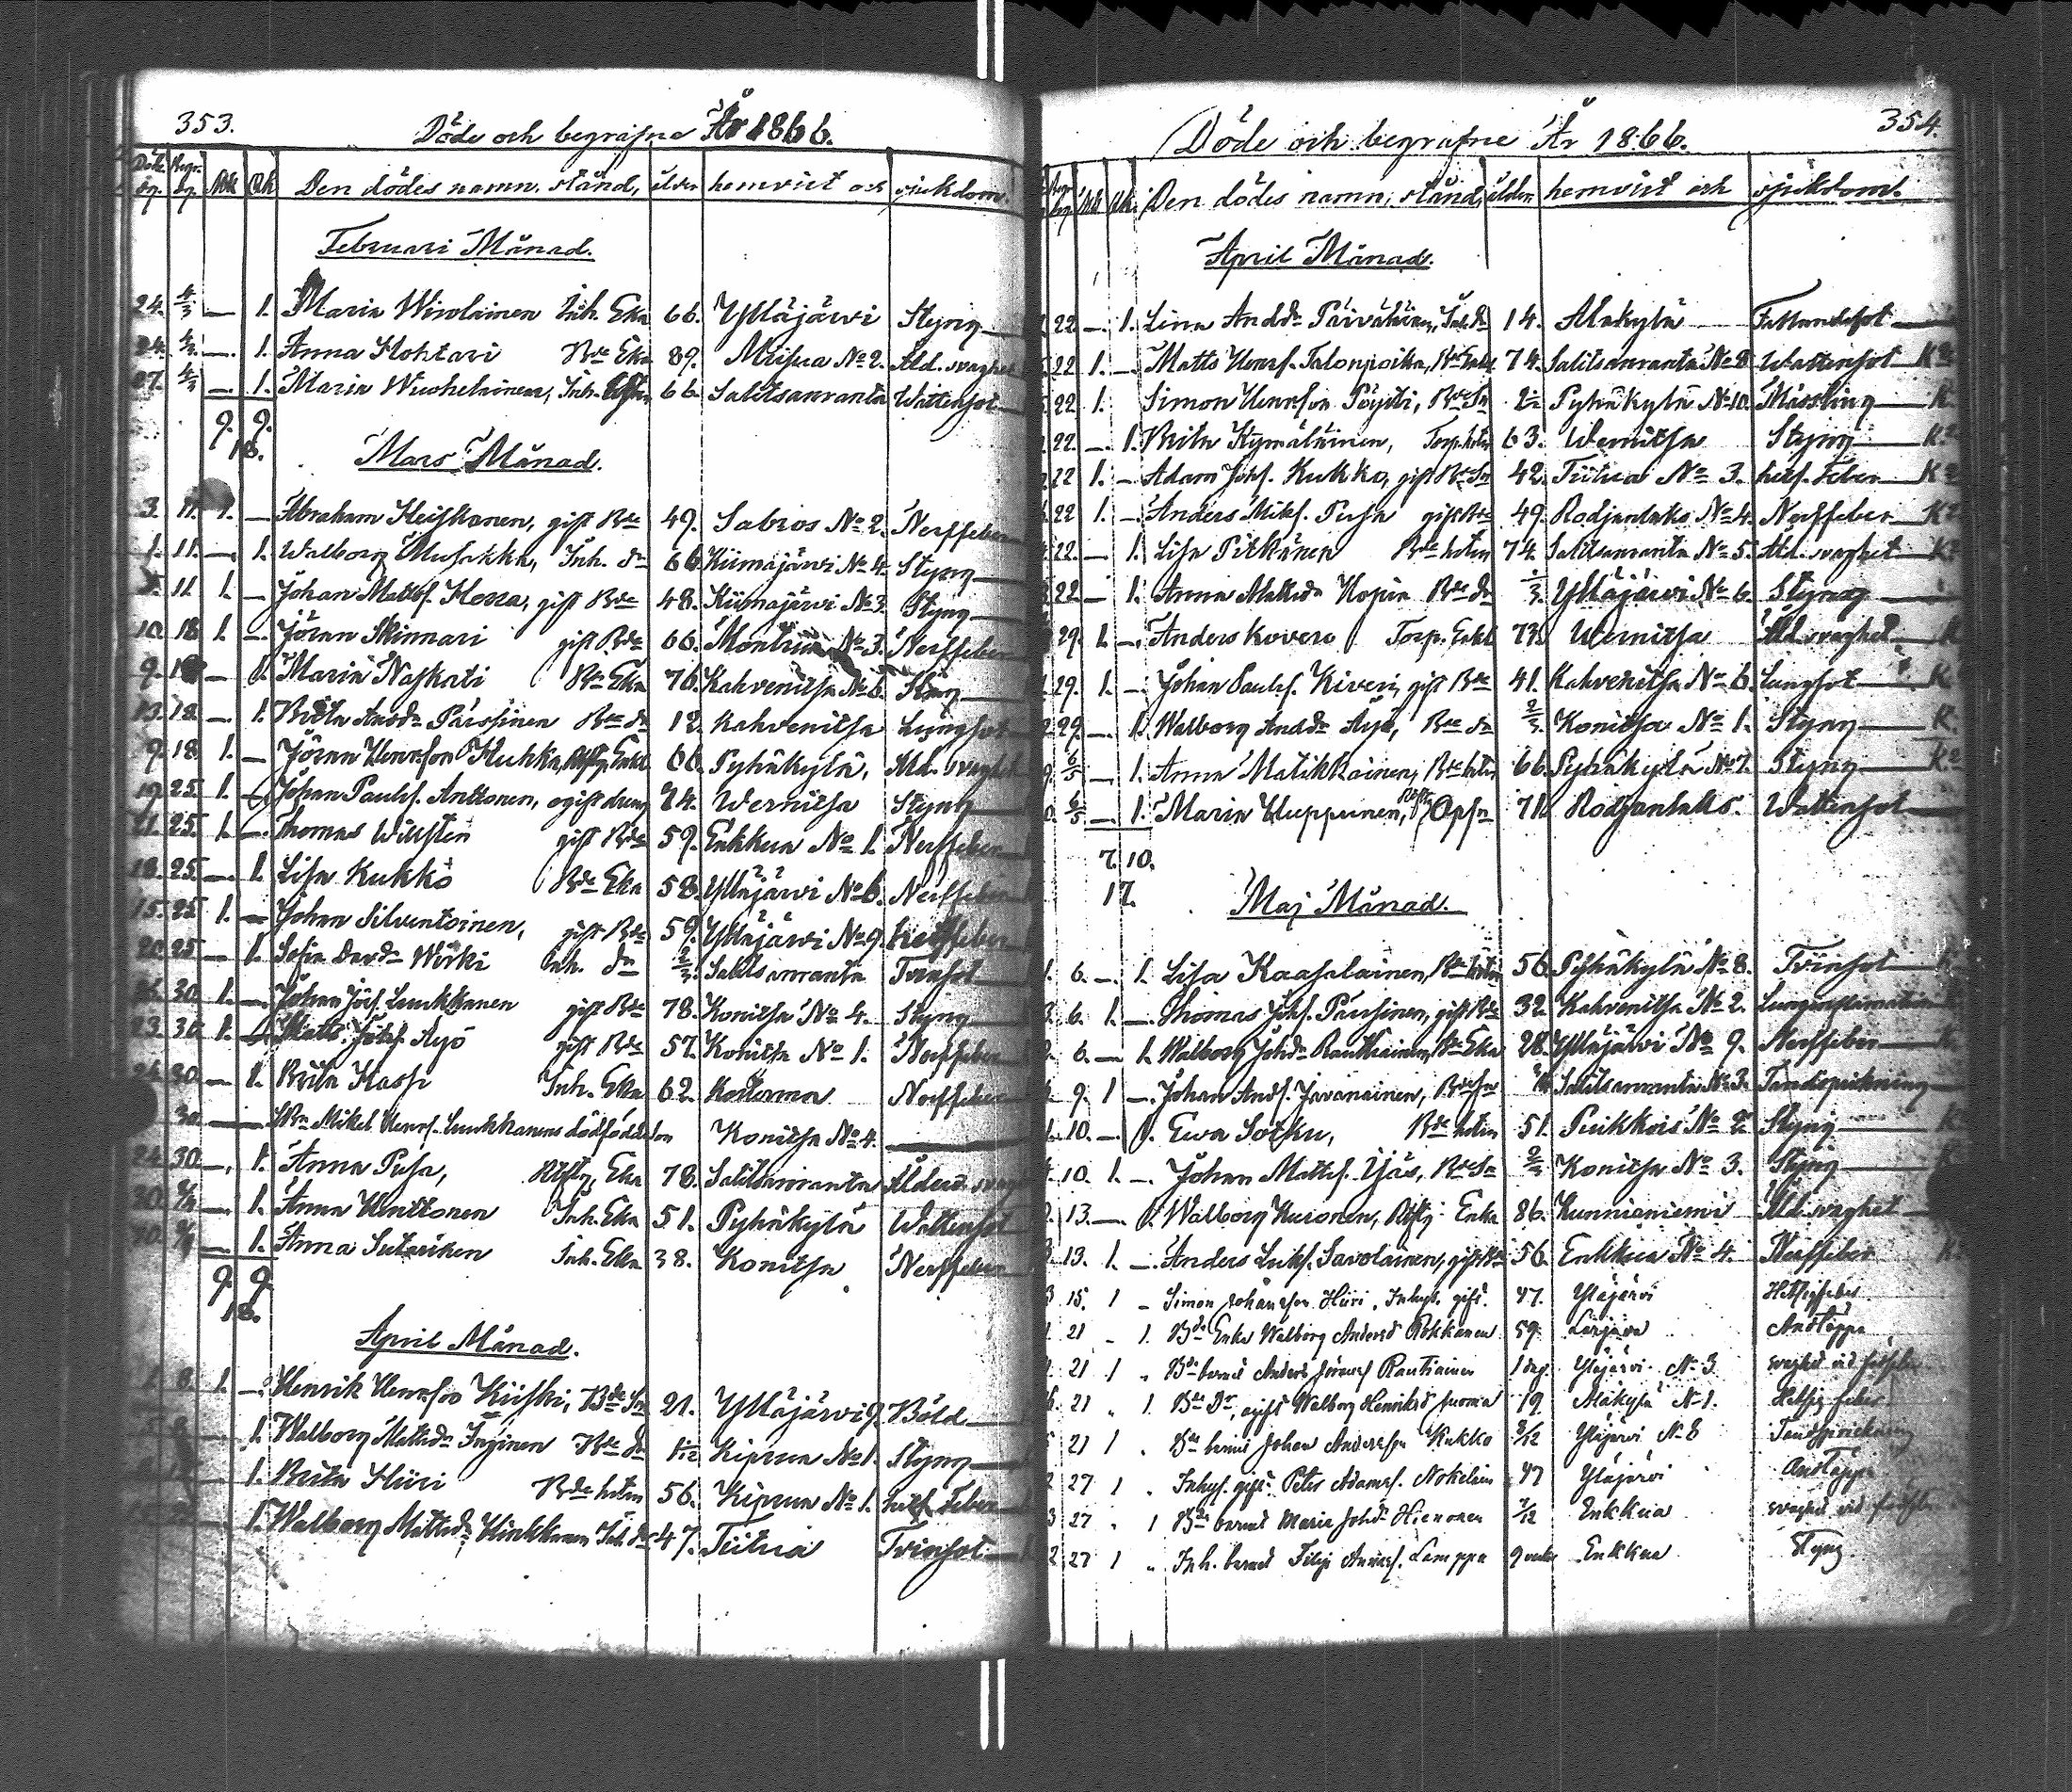 353.
Döde och begrafne År 1866.
Död. dg. Begr. dg. Mk Qk Den dödes namn, stånd, ålder hemvist och sjukdom.
Februari Månad.
24. 4/3 — 1. Maria Wirolainen Inh. Eka 66. Ylläjärvi Styng
24. 4/3 — 1. Anna Hohtari Bde Eka 89. Miisua No 2. Åld. svaghet
27. 4/3 — 1. Maria Wiwhelainen, Inh. 66. Salitsanranta Wattensot
9. 9.
18.
Mars Månad.
3. 11. 1. — Abraham Heiskanen, gift Bde 49. Sabros No 2. Nerffeber
1. 11. — 1. Walborg Musakka, Inh. dr 66 Kiimajärvi No 4. Styng
5. 11 1. — Johan Mattsf. Hessa, gift Bde 48. Kiimajärvi No 3. Styng
10. 18 1. — Jöran Skinnari gift Bde 66. No 3. Nerffeber
9. 18 — 1. Maria Naskali Bde Eka 76. Kahvenitsa No 6. Styng
13. 18. — 1. Brita Andsdr Pärssinen Bde dr 12. Kahvenitsa Lungsot
9. 18. 1. — Jöran Henrsson Kukka, Afsk. Enkl 66. Pyhäkylä, Åld. svaghet
19. 25. 1. — Johan Paulsf. Anttonen, ogift dreng 24. Wernitsa Styng
21. 25. 1. — Thomas Willsten gift Bde 59. Enkkua No 1. Nerffeber
18. 25. — 1. Lisa Kukko Bde Eka 58. Ylläjärvi No 6. Nerffeber
15. 25 1. — Johan Silventoinen, gift Bde 59. Ylläjärvi No 9.
20. 25 — 1. Sofia Davdr Wirki Inh. dr 2/3. Salitsanranta Tvinsot
26. 30. 1. — Johan Jösf. Lenkkanen gift Bde 78. Konitsa No 4. Styng
23. 30. 1. — Matts Jöhsf. Äyö gift Bde 57. Konitsa No 1. Nerffeber
24. 30. — 1. Brita Hasp Inh. Eka 62. Koterma Nerffeber
30. — Bde Mikel Henrsf. Lenkkanens dödfödde son Konitsa No 4.
24. 30. — 1. Anna Pusa, Eka 78. Salitsanranta Ålderd. svag
30. 2/4 — 1. Anna Henttonen Inh. Eka 51. Pyhäkylä Wattensot
30. 2/4 — 1. Anna Sutarinen Inh. Eka 38. Konitsa Nerffeber
9. 9.
18.
April Månad.
8. 1. — Henrik Henrsson Kiiski, Bde Sn 21. Ylläjärvi 9. Böld
1. Walborg Mattsdr Inginen Bde dr 1/12 Kiprua No 1. Styng
1. Brita Hiiri Bde hstru 56. Kiprua No 1. hetts. Feber
1. Walborg Mattsdr Hinkkanen Inh. dr 47. Tiitua Tvinsot
354.
Döde och begrafne År 1866.
Begr. dg. Mk Qk. Den dödes namn, stånd, ålder hemvist och sjukdom.
April Månad.
22 — 1. Lina Andsdr Päiväläinen, Inh. dr 14. Alakylä Fallandesot
22 1. — Matts Henrsf. Talonpoika, Bde Enkl 74. Salitsanranta No 8. Wattensot
22 1. Simon Henrsson Pöysti, Bde Sn 2 1/2 Pyhäkylä No 10. Mässling
22. — 1. Brita Kymäläinen, Torp. hstru 63. Wernitsa Styng
22 1. — Adam Johsf. Kukko, gift Bde Sn 42. Tiitua No 3. hets. Feber
22 1. — Anders Miksf. Pusa gift Bde 49. Rodjanlaks No 4. Nerffeber
22. — 1. Lisa Pitkänen Bde hstru 74. Salitsanranta No 5. Åld. svaghet
22 — 1. Anna Mattsdr Hopia Bde dr 1/3. Ylläjärvi No 6. Styng
29. 1. — Anders Kovero Torp. Enkl 73. Wernitsa Åld. svaghet
29. 1. — Johan Paulsf. Kiveri gift Bde 41. Kahvenitsa No 6. Lungsot
29. — 1. Walborg Andsdr Äyö, Bde dr 2/3. Konitsa No 1. Styng
6/5 — 1. Anna Matikkainen, Bde hstru 66. Pyhäkylä No 7. Styng
6/5 — 1. Maria Huppunen, 71. Rodjanlaks. Wattensot
7. 10.
17.
Maj Månad.
6. — 1. Lisa Kaasalainen, Bde hstru 56. Pyhäkylä No 8. Tvinsot
6. 1. — Thomas Johsf. Pärssinen, gift Bde 32. Kahvenitsa No 2. Lunginflamation
6. — 1. Walborg Johsdr Rautiainen, Bde Eka 28. Ylläjärvi No 9. Nerffeber
9. 1 — Johan Andsf. Javanainen, Bde Sn Salitsanranta No 3. Tandsprickning
10. — 1. Ewa Sotku, Bde hstru 51. Puikkois No 2 Styng
10. 1. — Johan Mattsf. Ijäs, Bde Sn 2/3 Konitsa No 3. Styng
13. — 1. Walborg Kuronen, Enka 86. Kunnianiemi Åld. svaghet
13. 1. — Anders Luksf. Savolainen, gift Bde 56. Enkkua No 4. Nerffeber
15. 1 — Simon Johansson Hiiri, Inhys. gift. 47. Yläjärvi Hetsigfeber
21 „ 1. Bde Enka Walborg Andersd Rokkanen 59. Larjava Andtäppa
21 1 „ Bde barnet Anders Jöransf Rautiainen 1 dag. Yläjärvi No 3 svaghet vid födseln
21 „ 1. Bde Dr, ogift Walborg Henriksd Juoma 19. Alakylä No 1. Hetsig feber
21 1 „ Bde barnet Johan Andersson Kukko 8/12 Yläjärvi No 8 Tandsprickning
27 1 „ Inhys. gift. Peter Adamsf. Nokelain 47 Yläjärvi Andtäppa
27 „ 1 Bde barnet Maria Johsdr Hienonen 1/12 Enkkua svaghet vid födseln
27 1 „ Inh. barnet Filip Lamppu 9 veckor Enkkua Styng